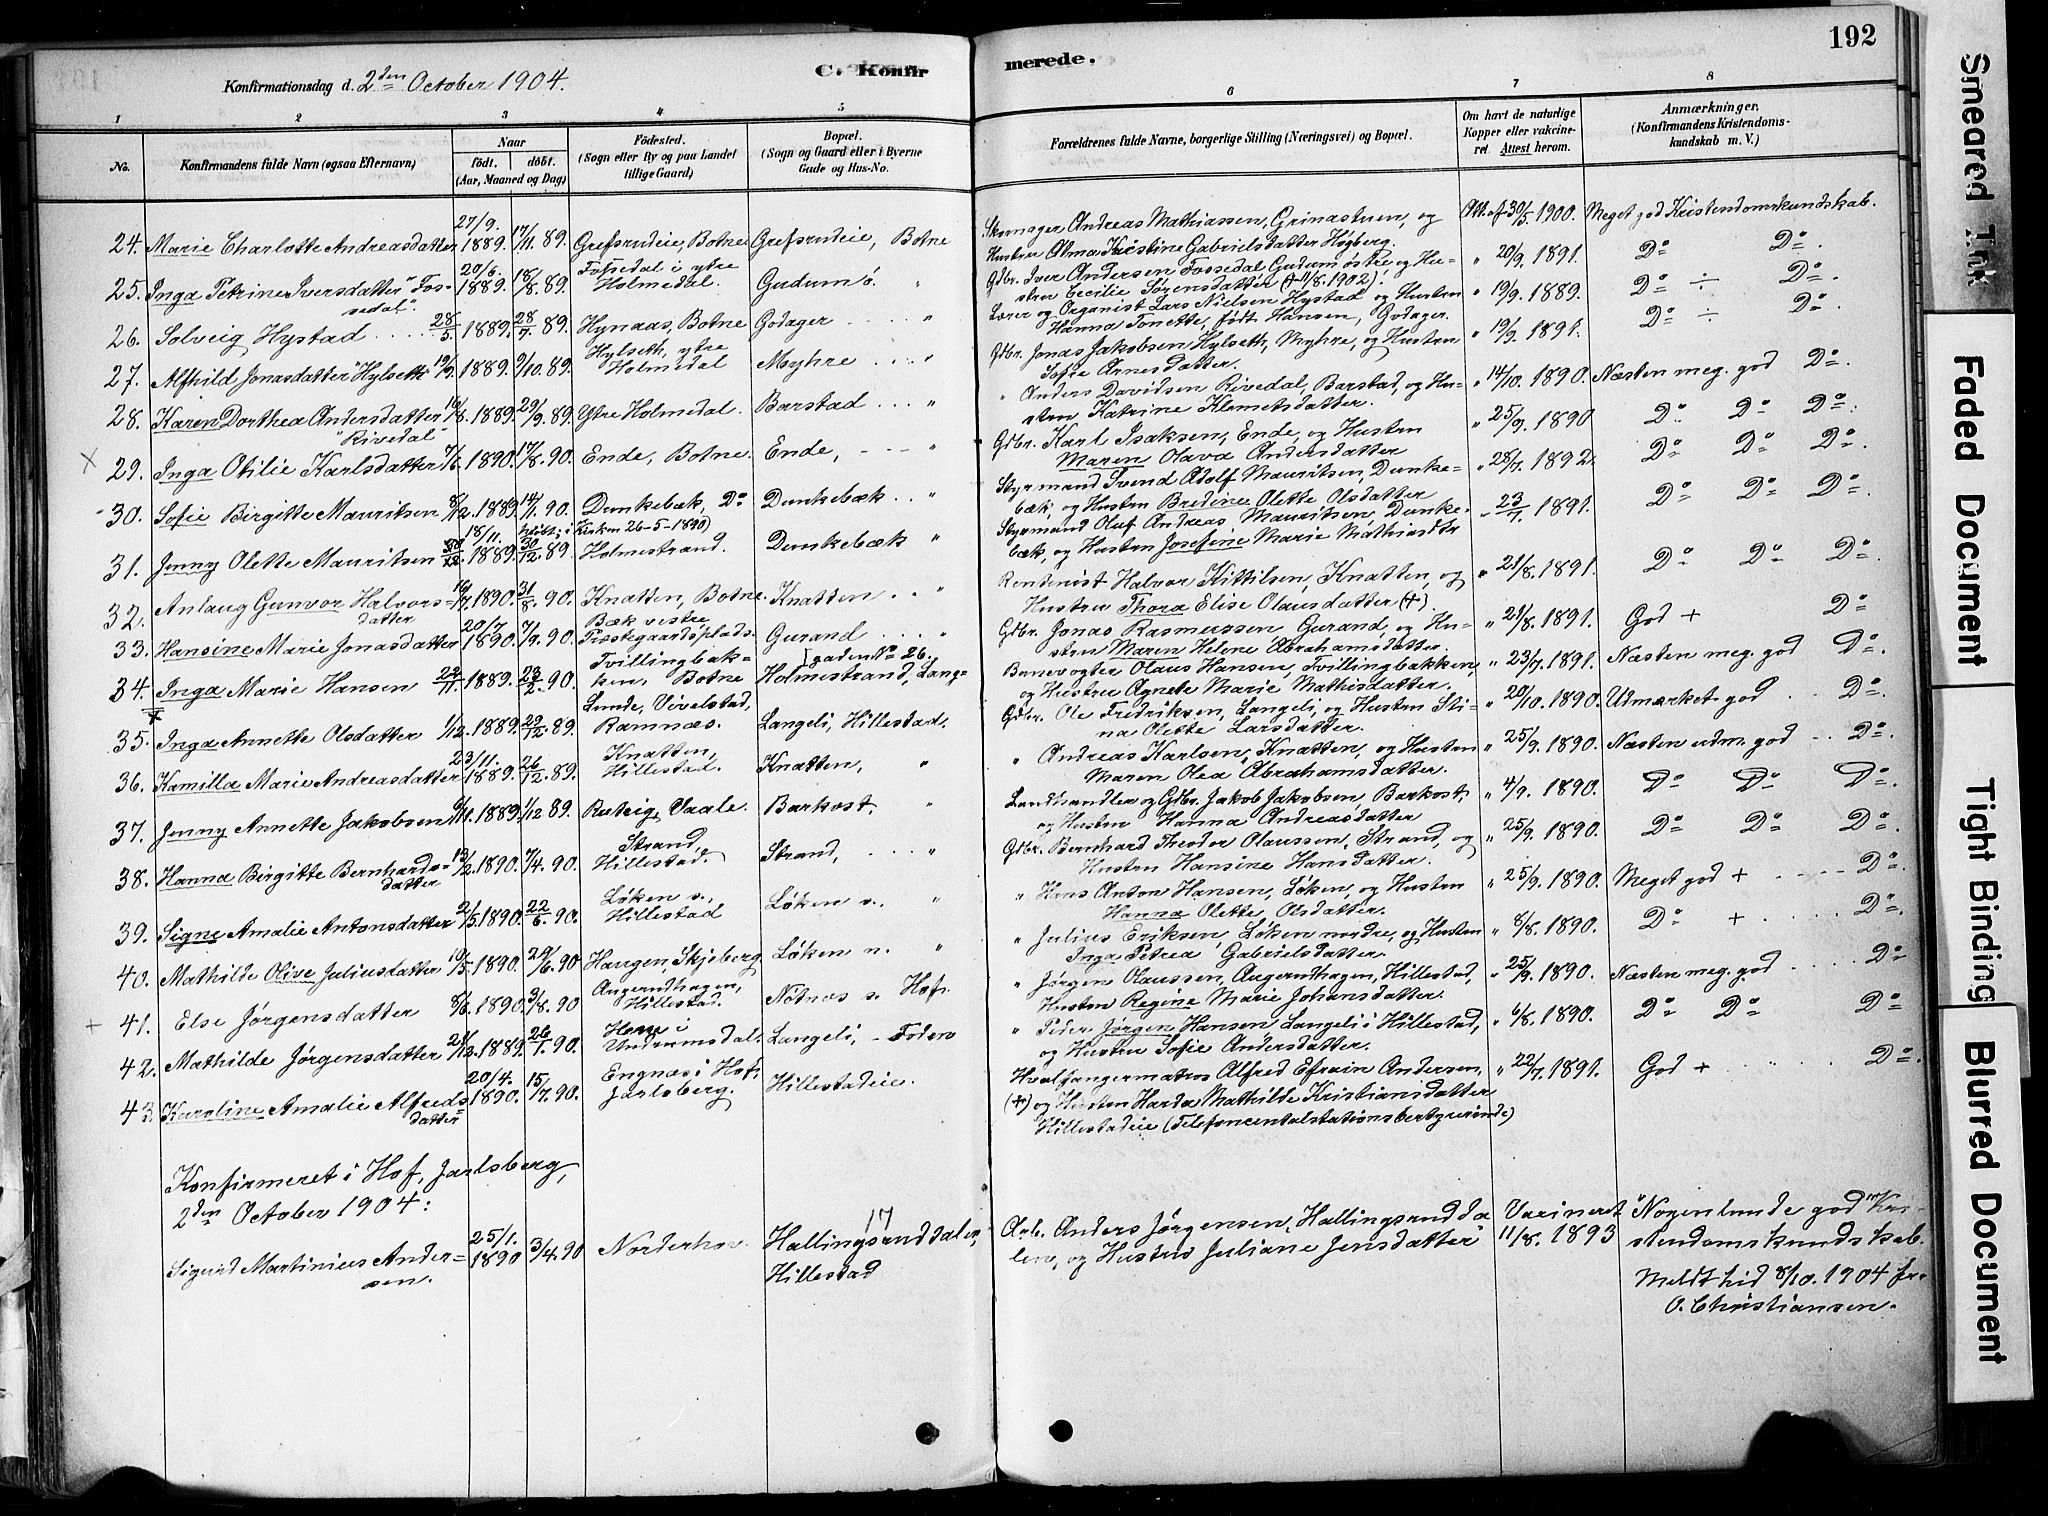 192
C. Konfirmerede.
Konfirmationsdag d. 2den October 1904.
1 2 3 4 5 6 7 8
No.
Konfirmandens fulde Navn (ogsaa Efternavn)
Naar
født. døbt.
(Aar, Maaned og Dag)
Fødested.
(Sogn eller By og paa Landet
tillige Gaard)
Bopæl.
(Sogn og Gaard eller i Byerne
Gade og Hus-No.
Forældrenes fulde Navne, borgerlige Stilling (Næringsvei) og Bopæl.
Om havt de naturlige
Kopper eller vakcine-
ret. Attest herom.
Anmærkninger.
(Konfirmandens Kristendoms-
kundskab m. V.)
24. Marie Charlotte Andreasdatter 27/9. 1889. 17/11. 89. Grefsrudeie, Botne Grefsrudeie, Botne Skomager Andreas Mathiassen, Grinastuen, og Att. af 30/5 1900. Meget god Kristendomskundskab.
Hustru Alma Kristine Gabrielsdatter Høgberg.
25. Inga Petrine Iversdatter "Fos- 20/6. 1889. 18/8. 89. Fossedal i ytre Gudum ø. " Gdbr. Iver Andersen Fossedal Gudum østre og Hu- " 20/9. 1891. Do Do
sedal". Holmedal. stru Cecilie Sørensdatter (+ 11/8. 1902).
26. Solveig Hystad 28/5. 1889. 28/7. 89. Hynaas, Botne Godager " Lærer og Organist Lars Nielsen Hystad og Hustru " 19/9. 1889. Do ÷ Do
Hanna Tonette, født Hansen, Godager.
27. Alfhild Jonasdatter "Hylseth" 19/9. 1889. 9/10. 89. Hylseth, ytre Myhre " Gdbr. Jonas Jakobsen Hylseth, Myhre, og Hustru " 19/9. 1891. Do ÷ Do
Holmedal Sofie Arnesdatter.
28. Karen Dorthea Andersdatter 16/8. 1889. 29/9. 89. Ytre Holmedal. Barstad " " Anders Davidsen Rivedal, Barstad, og Hu- " 14/10. 1890. Næsten meg. god Do
"Rivedal" stru Katrine Klemetsdatter.
29. Inga Otilie Karlsdatter 7/6. 1890. 17/8. 90. Ende, Botne. Ende, " Gdbr. Karl Isaksen, Ende, og Hustru " 25/9. 1890 Do Do Do
Maren Olava Andersdatter
30. Sofie Birgitte Mauritsen 8/12. 1889. 14/1. 90. Dunkebæk, Do Dunkebæk " Styrmand Svend Adolf Mauritsen, Dunke- " 28/7. 1892. Do Do Do
bæk, og Hustru Bredine Olette Olsdatter
31. Jenny Olette Mauritsen 18/11. 1889. 30/12. 89. Kirken 26-5-1890) Holmestrand. Dunkebæk " Styrmand Oluf Andreas Mauritsen, Dunke- " 23/7. 1891. Do Do Do
bæk, og Hustru Josefine Marie Mathiasdtr
32. Anlaug Gunvor Halvors- 1890. 31/8. 90. Knatten, Botne. Knatten " Rentenist Halvor Kittilsen, Knatten, og " 21/8. 1891. Do Do Do
datter Hustru Thora Elise Olausdatter (+).
33. Hansine Marie Jonasdatter 20/7. 1890. 7/9. 90. Bæk vestre Gurand " Gdbr. Jonas Rasmussen Gurand, og Hu- " 21/8. 1891. God + Do
Præstegaardsplads. stru Maren Helene Abrahamsdatter.
34. Inga Marie Hansen 22/11. 1889. 23/2. 90. Tvillingbak- Holmestrand, Lang- Banevogter Olaus Hansen, Tvillingbakken, " 23/7. 1891. Næsten meg. god Do
ken, Botne gaden No 26. og Hustru Agnete Marie Mathisdatter.
35. Inga Annette Olsdatter 1/12. 1889. 29/12. 89. Lunde, Vivelstad, Langeli, Hillestad. Gdbr. Ole Fredriksen, Langeli, og Hustru Sti- " 20/10. 1890. Udmærket god Do
Ramnæs. na Olette Larsdatter.
36. Kamilla Marie Andreasdatter 23/11. 1889. 26/12. 89. Knatten, Knatten, " " Andreas Karlsen, Knatten, og Hustru " 25/9. 1890. Næsten udm. god Do
Hillestad. Maren Olea Abrahamsdatter.
37. Jenny Annette Jakobsen 1889. 1/12 89. Rutvig, Vaale. Barkost, " Landhandler og Gdbr. Jakob Jakobsen, Barkost, " 4/9. 1890. Do Do Do
og Hustru Hanna Andreasdatter
38. Hanna Birgitte Bernhards- 13/2. 1890. 7/4. 90. Strand, Strand, " Gdbr. Bernhard Theodor Olaussen, Strand, og " 25/9. 1890. Do Do Do
datter Hillestad. Hustru Hansine Hansdatter.
39. Signe Amalie Antonsdatter 2/5. 1890. 22/6. 90. Løken s., Løken s., " " Hans Anton Hansen, Løken, og Hustru " 25/9. 1890. Meget god + Do
Hillestad Hanna Olette Olsdatter.
40. Mathilde Olive Juliusdatter 10/5. 1890. 29/6. 90 Haugen, Skjeberg Løken n. " " Julius Eriksen, Løken nordre, og Hustru " 8/8. 1890. Do + Do
Inga Petrea Gabrielsdatter.
41. Else Jørgensdatter 8/6. 1890. 3/8. 90 Angerudhagen, Nøtnæs s. Hof. " Jørgen Olaussen, Angerudhagen, Hillestad, " 25/9. 1890. Næsten meg. god Do
Hillestad. Hustru Regine Marie Johansdatter.
42. Mathilde Jørgensdatter 21/12. 1889. 26/1. 90. i Undrumsdal. Langeli, " Peder Jørgen Hansen, Langeli i Hillestad, " 6/8. 1890. Do Do Do
og Hustru Sofie Andersdatter.
43. Karoline Amalie Alfreds- 20/4. 1890. 15/7. 90. Engnæs i Hof, Hillestadeie. Hvalfangermatros Alfred Efraim Andersen, " 22/7. 1891. God + Do
datter Jarlsberg. (+) og Hustru Harda Mathilde Kristiansdatter
Hillestadeie (Telefoncentalstationsbestyrerinde)
Konfirmeret i Hof, Jarlsberg,
2den October 1904:
Sigurd Martinius Ander- 25/1. 1890 3/4. 90 Norderhov. 17 Hallingsruddalen, Arb. Anders Jørgensen, Hallingsrudda- Vaxineret "Nogenlunde god" Kri-
sen. Hillestad len, og Hustru Juliane Jensdatter 11/8. 1893 stendomskundskab.
Meldt hid 8/10. 1904 fr.
O. Christiansen.
Smeared Ink
Faded Document
Tight Binding
Blurred Document